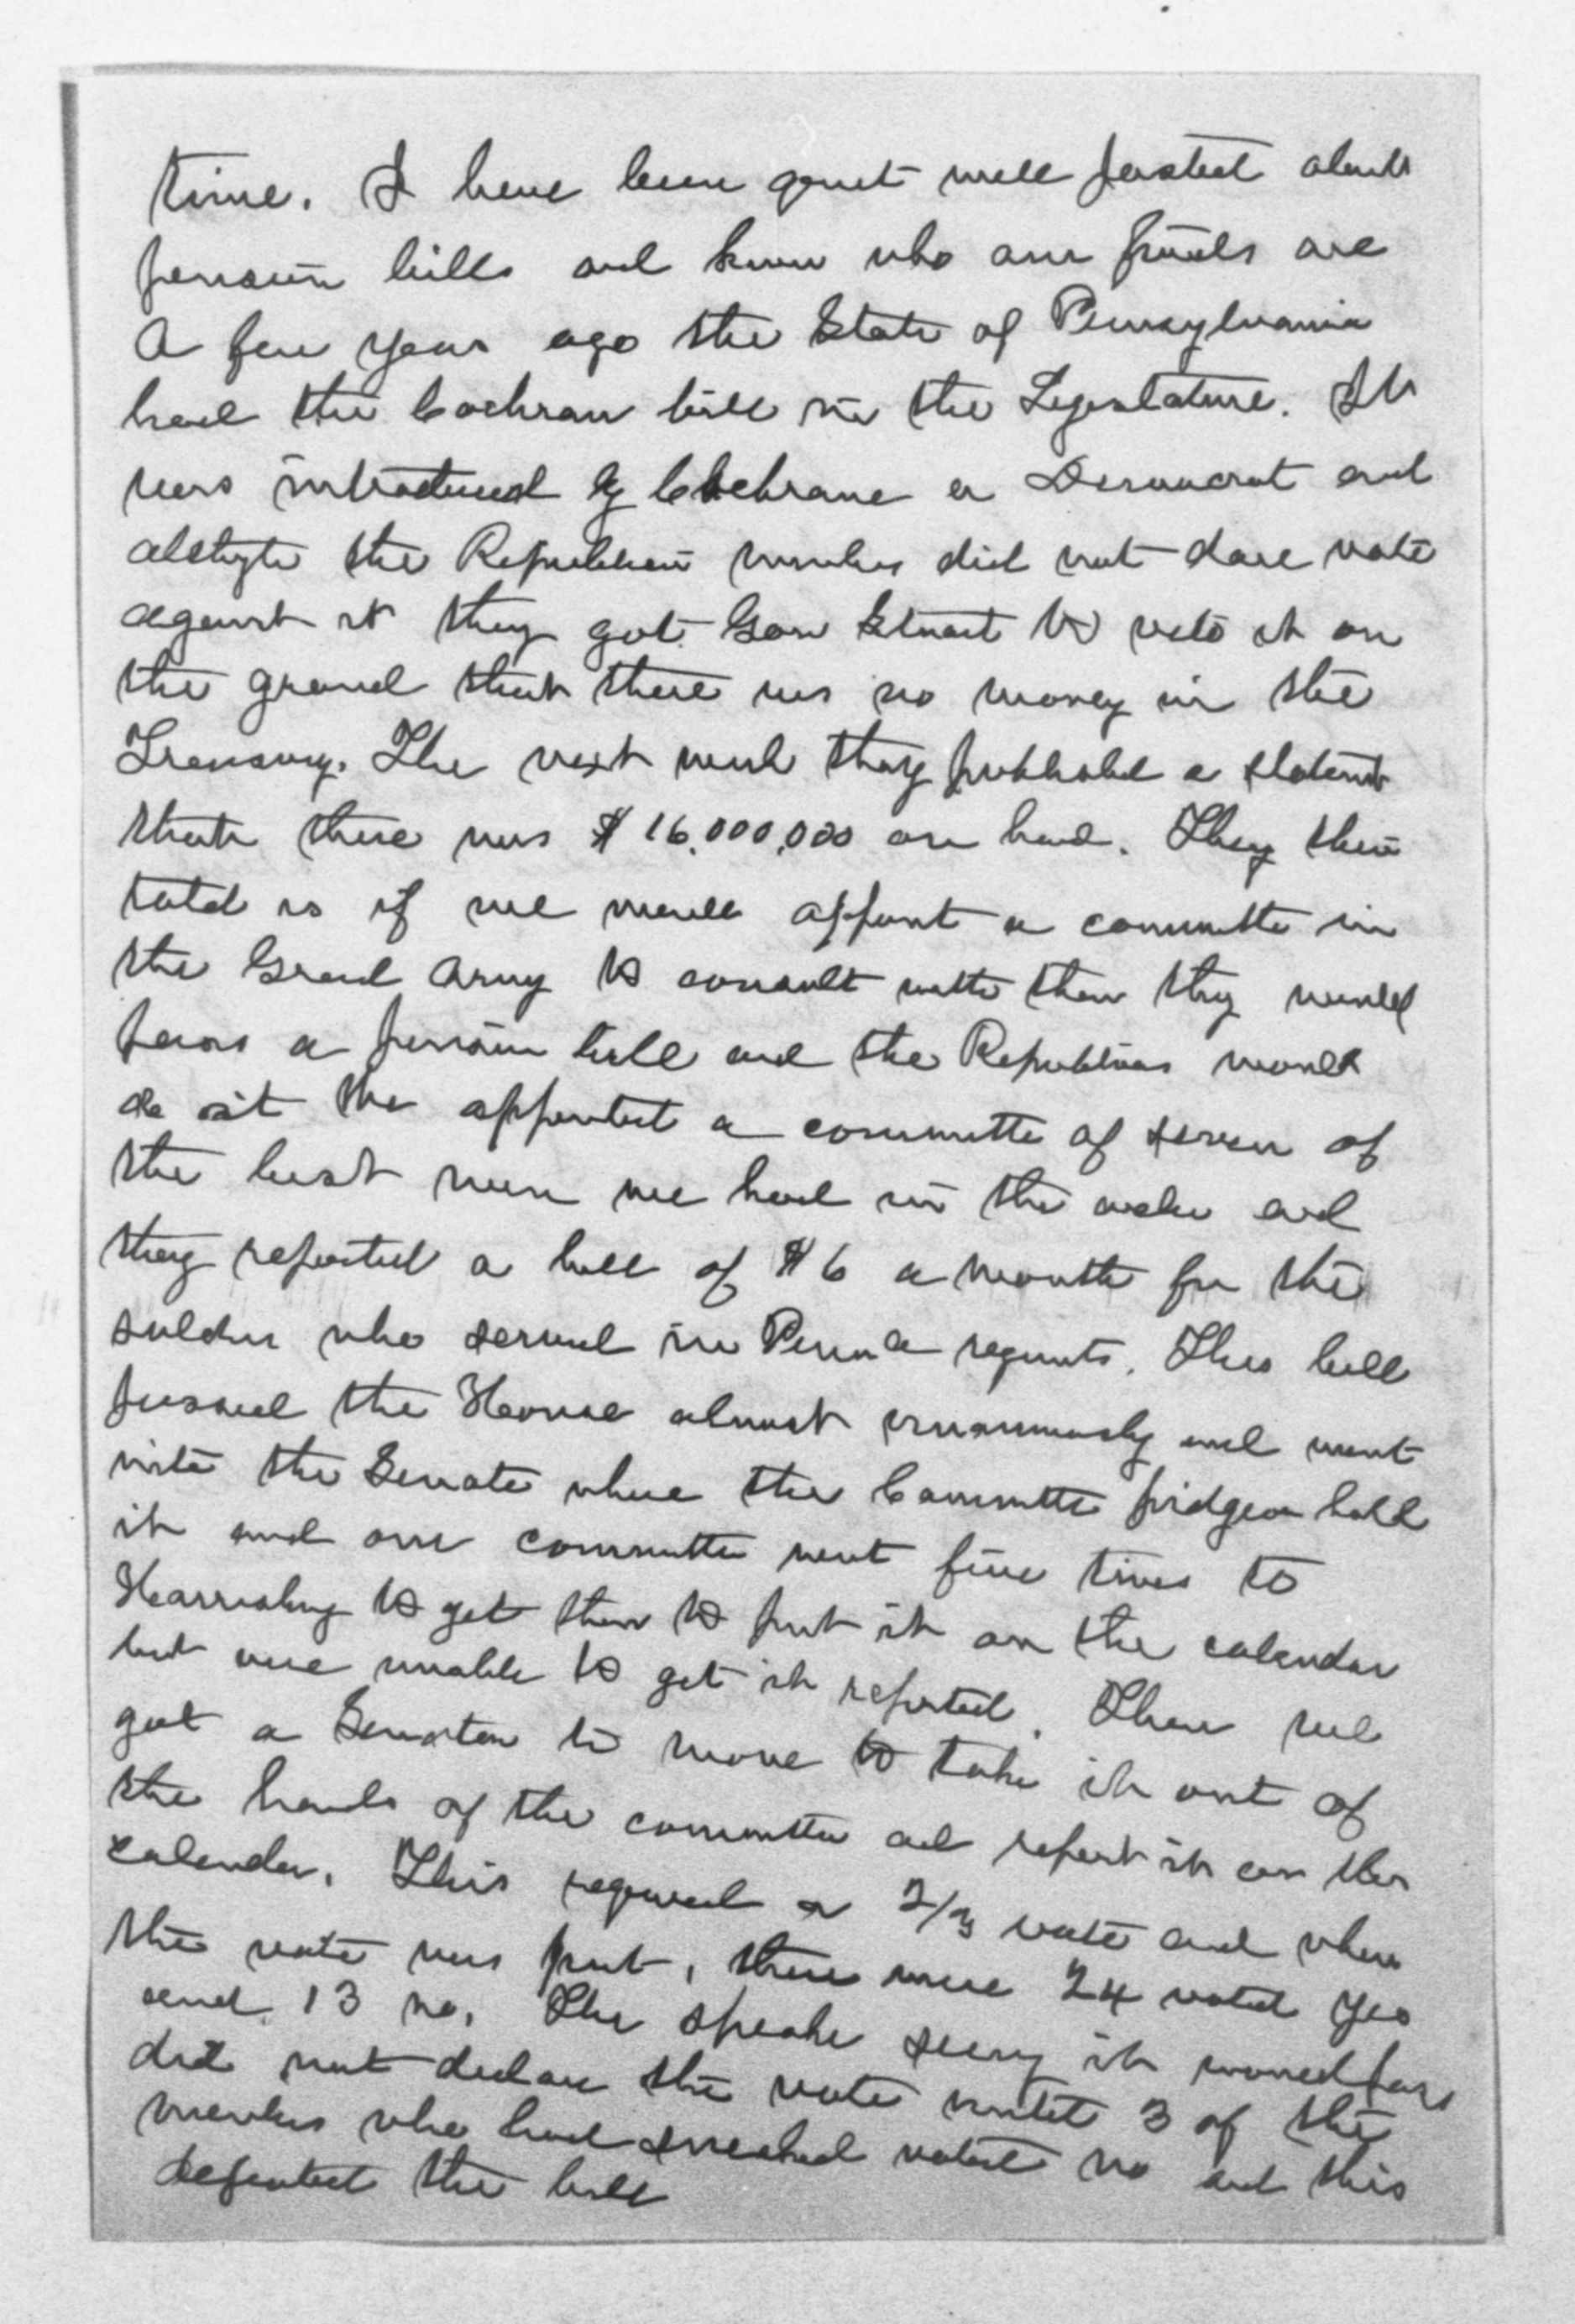 time. I have been quit well posted about
pension bills and know who our friends are
A few years ago the State of Pennsylvania
had the Cochran bill in the Legislature. It
was introduced by Cochrane a Democrat and
altho the Republican members did not dare vote
against it they got Gov Stuart to veto it on
the ground that there was no money in the
Treasury. The next week they published a statement
that there was $16,000,000 on hand. They then
told us if we would appoint a committee in
the Grand Army to consult with them they would
pass a pension bill and the Republicans would
do it We appointed a committee of seven of
the best men we had in the order and
they reported a bill of $6 a month for the
soldier who served in Penna regiments. This bill
passed the House almost unanimously and went
into the Senate where the Committee pidgeon holed
it and our committee went five times to
Harrisburg to get them to put it on the calendar
but were unable to get it reported. Then we
got a Senator to move to take it out of
the hands of the committee and report it on the
calendar. This required a 2/3 vote and when
the vote was put, there were 24 voted yes
and 13 no. The speaker seeing it would pass
did not declare the vote until 3 of the
members who had sneaked voted no and this
defeated the bill